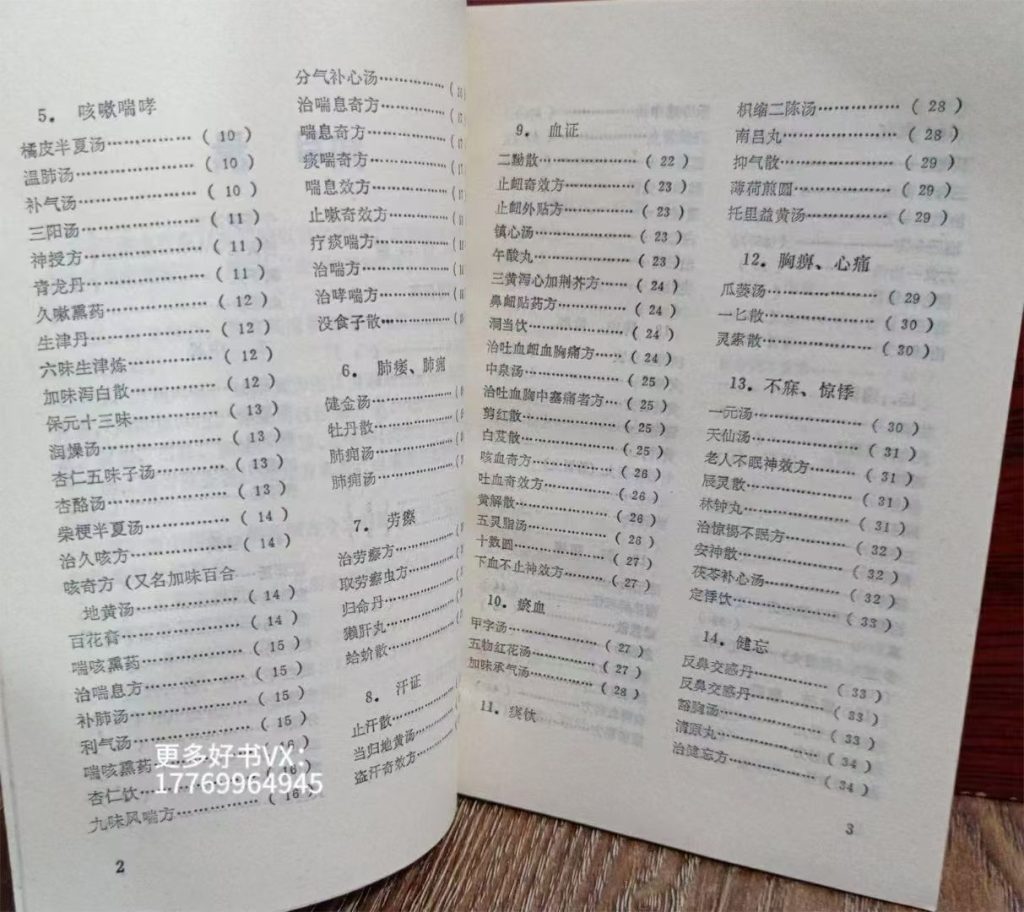 5. 咳嗽喘哮
橘皮半夏汤……………( 10 )
温肺汤……………( 10 )
补气汤……………( 10 )
三阳汤……………( 11 )
神授方……………( 11 )
青龙丹……………( 11 )
久嗽熏药……………( 12 )
生津丹……………( 12 )
六味生津炼……………( 12 )
加味泻白散……………( 12 )
保元十三味……………( 13 )
润燥汤……………( 13 )
杏仁五味子汤……………( 13 )
杏酪汤……………( 13 )
柴梗半夏汤……………( 14 )
治久咳方……………( 14 )
咳奇方（又名加味百合
地黄汤……………( 14 )
百花膏……………( 14 )
喘咳熏药……………( 15 )
治喘息方……………( 15 )
补肺汤……………( 15 )
利气汤……………( 15 )
喘咳熏药……………( 16 )
杏仁饮……………( 16 )
九味风喘方……………( 16 )
2
分气补心汤……………
治喘息奇方……………
喘息奇方……………
痰喘奇方……………
喘息效方……………
止嗽奇效方……………
疗痰喘方……………
治喘方……………
治哮喘方……………
没食子散……………
6. 肺痿、肺痈
健金汤……………
牡丹散……………
肺痈汤……………
肺痈汤……………
7. 劳瘵
治劳瘵方……………
取劳瘵虫方……………
归命丹……………
獭肝丸……………
蛤蚧散……………
8. 汗证
止汗散……………
当归地黄汤……………
盗汗奇效方……………
9. 血证
二勫散……………( 22 )
止衄奇效方……………( 23 )
止衄外贴方……………( 23 )
镇心汤……………( 23 )
午酸丸……………( 23 )
三黄泻心加荆芥方……………( 24 )
鼻衄贴药方……………( 24 )
洞当饮……………( 24 )
治吐血衄血胸痛方……………( 24 )
中泉汤……………( 25 )
治吐血胸中塞痛者方……………( 25 )
剪红散……………( 25 )
白芨散……………( 25 )
咳血奇方……………( 26 )
吐血奇效方……………( 26 )
黄解散……………( 26 )
五灵脂汤……………( 26 )
十数圆……………( 27 )
下血不止神效方……………( 27 )
10. 瘀血
甲字汤……………( 27 )
五物红花汤……………( 27 )
加味承气汤……………( 28 )
11. 痰饮
枳缩二陈汤……………( 28 )
南吕丸……………( 28 )
抑气散……………( 29 )
薄荷煎圆……………( 29 )
托里益黄汤……………( 29 )
12. 胸痹、心痛
瓜蒌汤……………( 29 )
一匕散……………( 30 )
灵索散……………( 30 )
13. 不寐、惊悸
一元汤……………( 30 )
天仙汤……………( 31 )
老人不眠神效方……………( 31 )
辰灵散……………( 31 )
林钟丸……………( 31 )
治惊惕不眠方……………( 32 )
安神散……………( 32 )
茯苓补心汤……………( 32 )
定悸饮……………( 33 )
14. 健忘
反鼻交感丹……………( 33 )
反鼻交感丹……………( 33 )
豁胸汤……………( 33 )
清原丸……………( 34 )
治健忘方……………( 34 )
3
更多好书VX：
17769964945